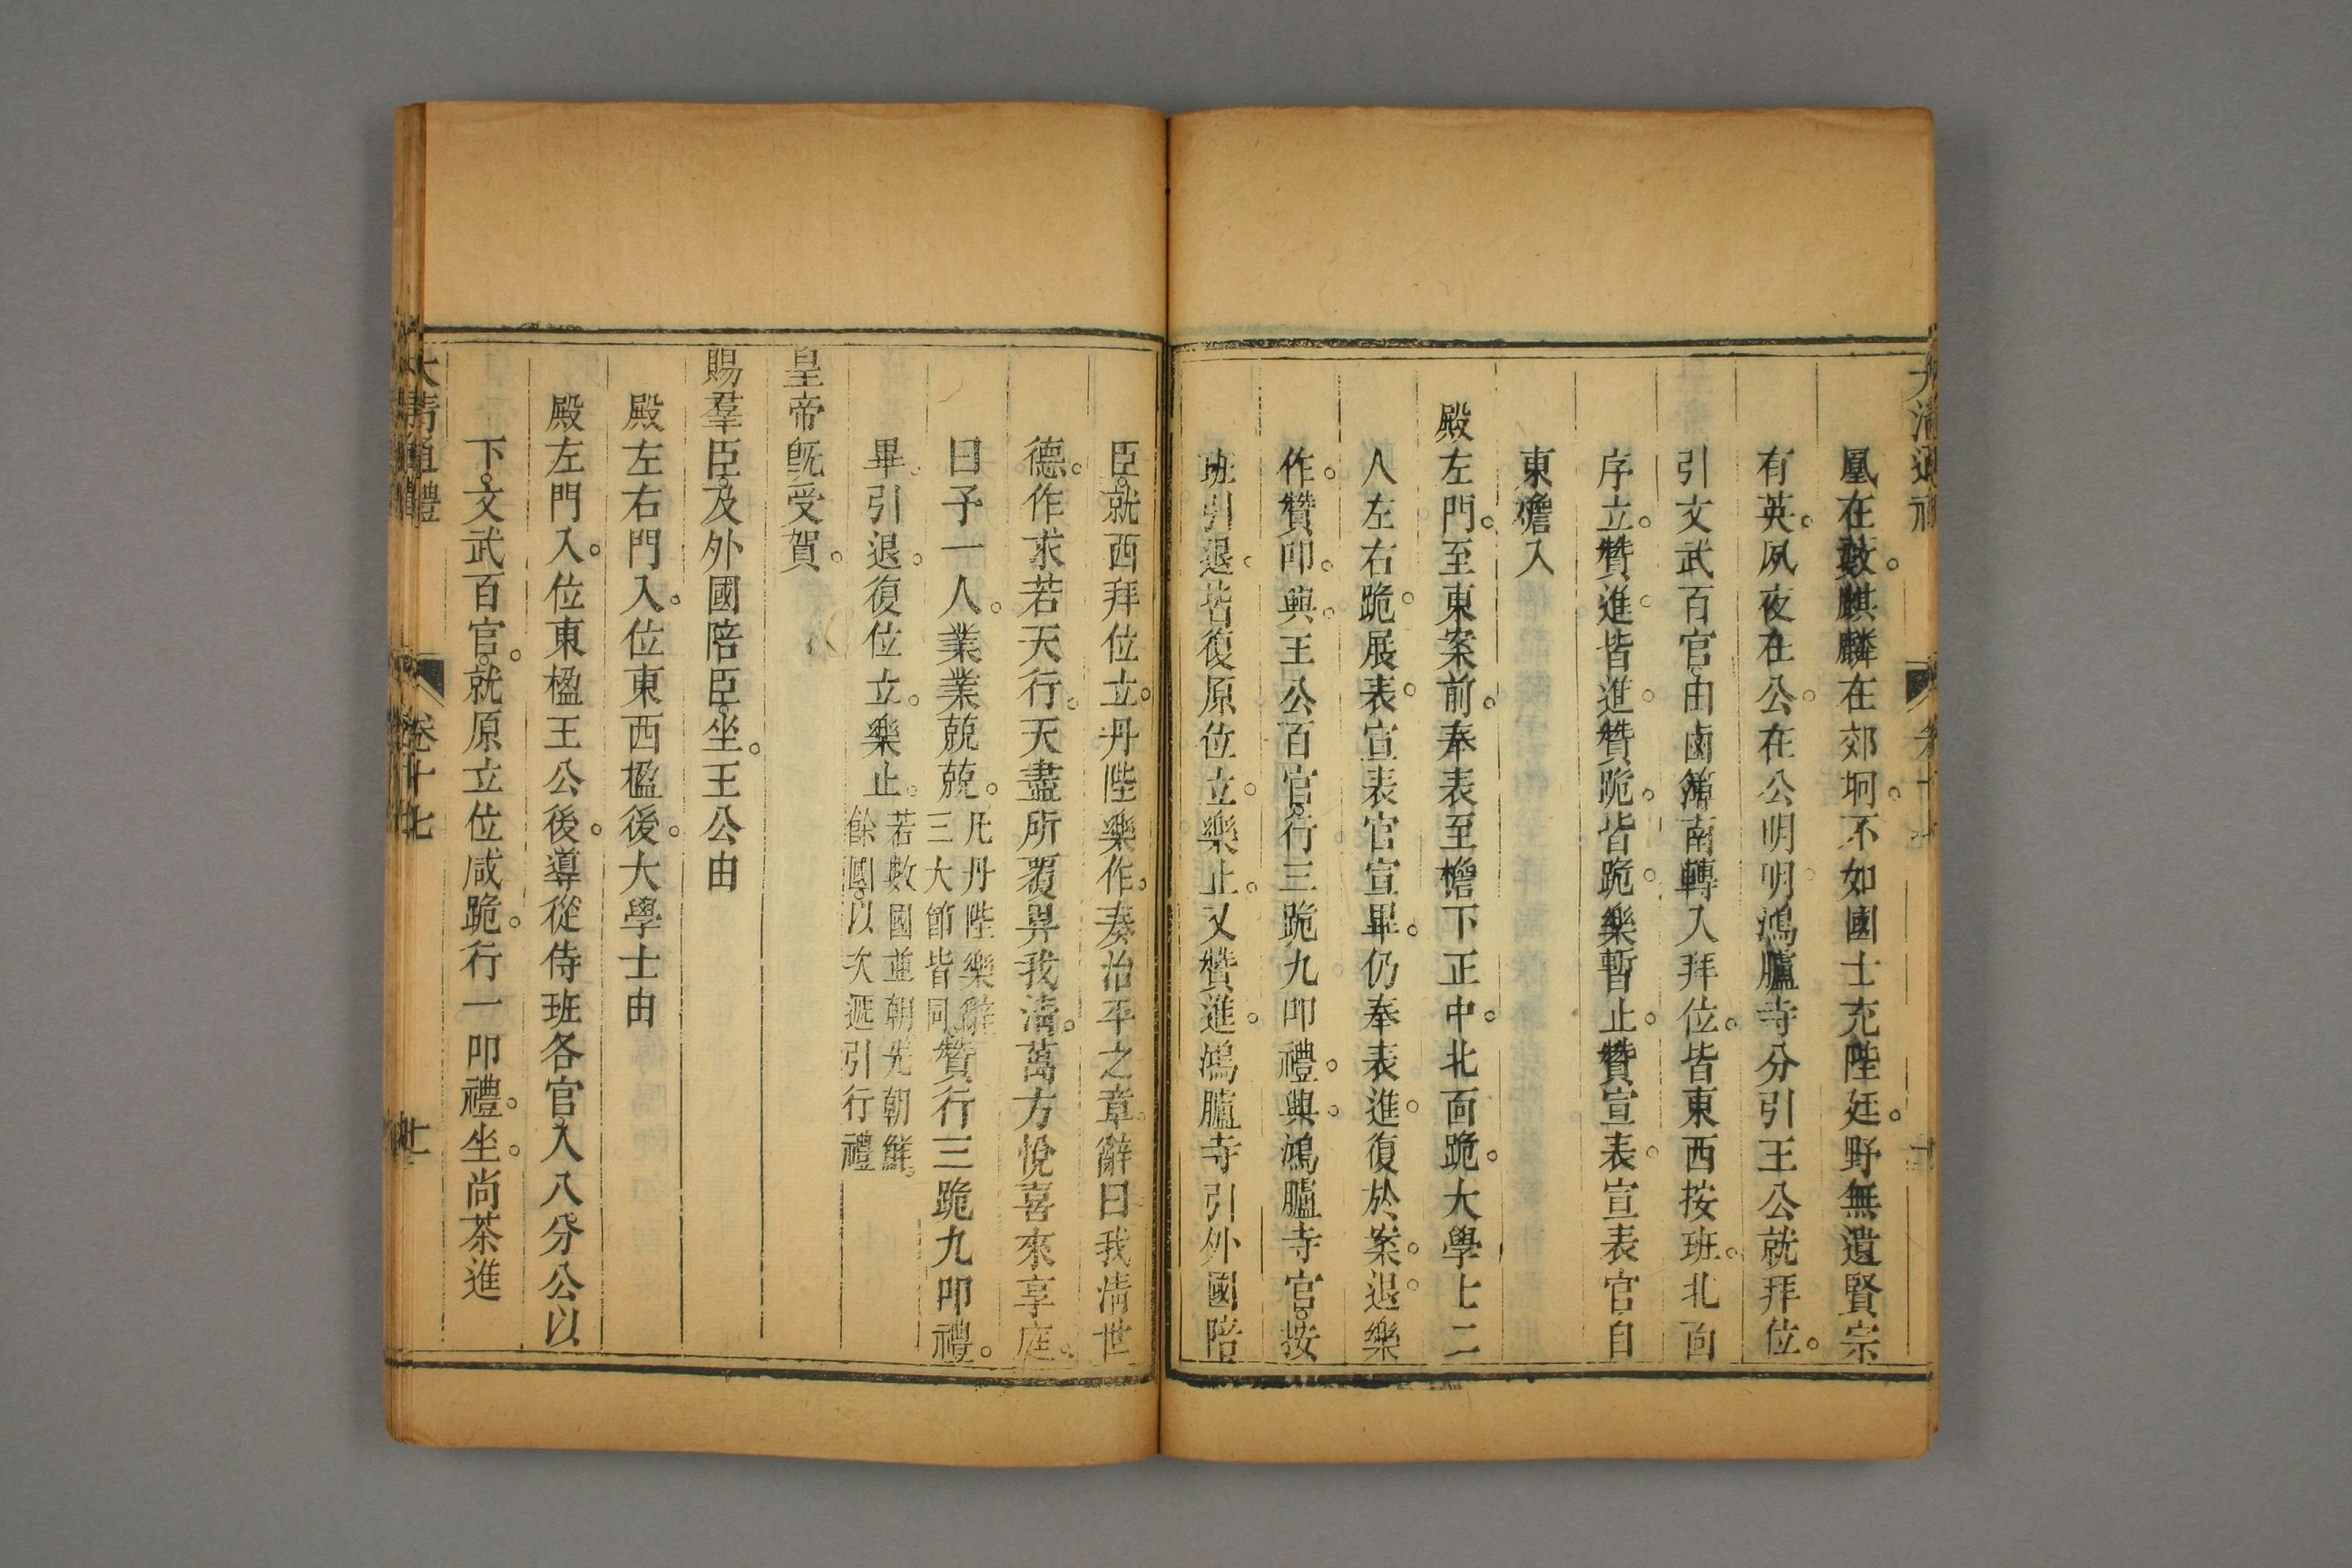 大清通禮
鳳在藪。麒麟在郊坰。不如國士充陛廷。野無遺賢宗
有英。夙夜在公。在公明明。鴻臚寺分引王公就拜位。
引文武百官。由鹵簿南轉入拜位。皆東西按班。北面
序立。贊進。皆進。贊跪。皆跪。樂暫止。贊宣表。宣表官自
東檐入
殿左門。至東案前。奉表至檐下正中。北面跪。大學士二
人左右跪。展表。宣表官宣畢。仍奉表進。復於案。退。樂
作。贊叩。興。王公百官。行三跪九叩禮。興。鴻臚寺官。按
班引退。皆復原位立。樂止。又贊進。鴻臚寺引外國陪
臣。就西拜位立。丹陛樂作。奏治平之章。辭曰我淸世
德。作求若天行。天盡所覆畀我淸。萬方悅喜來享庭。
曰予一人。業業兢兢。凡丹陛樂辭三大節皆同。贊行三跪九叩禮。
畢。引退。復位立。樂止。若數國並朝先朝鮮。餘國。以次遞引行禮
皇帝旣受賀。
賜羣臣。及外國陪臣。坐。王公由
殿左右門入。位東西楹後。大學士由
殿左門入。位東楹王公後。導從侍班各官。入八分公以
下。文武百官。就原立位咸跪。行一叩禮。坐。尚茶進
大清通禮
卷十七